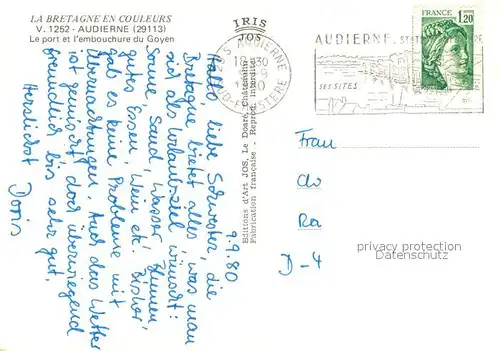 LA BRETAGNE EN COULEURS
V. 1252 - AUDIERNE (29113)
Le port et l'embouchure du Goyen
IRIS
JOS
Editions d'Art JOS, Le Doaré, Châteaulin
Fabrication française - Reprod. interdite
AUDIERNE
FINISTERE
AUDIERNE
SES SITES
FRANCE
1,20
9.9.80
Hallo, liebe Schwester, die
Bretagne bietet alles, was man
sich als Urlaubsziel wünscht:
Sonne, Sand, Wasser, Blumen,
gutes Essen, Wein etc. Bisher
gab es keine Probleme mit
Übernachtungen. Auch das Wetter
ist gemischt doch überwiegend
freundlich bis sehr gut.
Herzlichst
Doris
Frau
Ra
D-4
privacy protection
DelcampeDatas